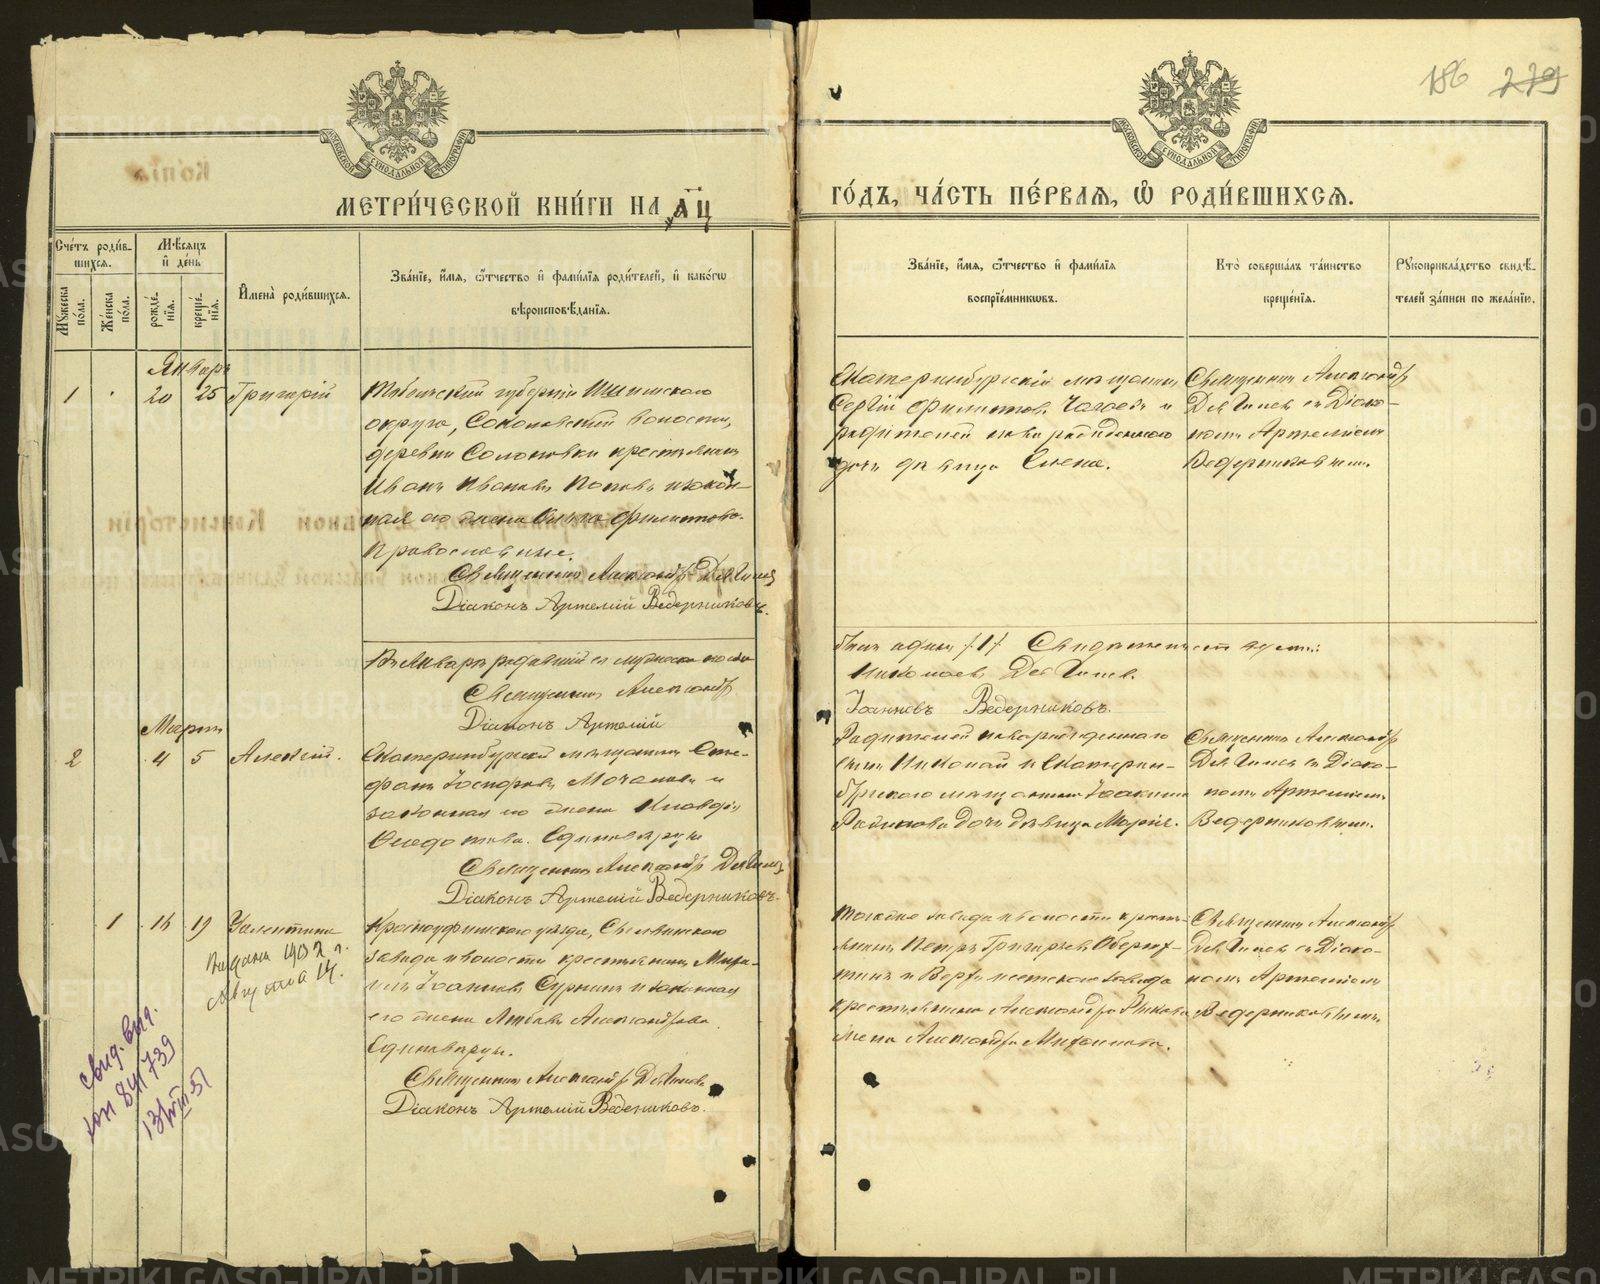 186 279
МЕТРИ́ЧЕСКОЙ КНИ́ГИ НА ҂АЦ
ГО́ДЪ, ЧА́СТЬ ПЕ́РВАЯ, Ѡ РОДИ́ВШИХСЯ.
Сче́тъ роди́в-
шихся.
Мѣ́сяцъ
и де́нь
Мꙋжеска пола.
Же́нска пола.
рожде́-
нїя.
креще́-
нїя.
И҆мена̀ роди́вшихся.
Зва́нїе, и҆́мя, ѻ҆́тчество и҆ фами́лїя роди́телей, и҆ како́гѡ
вѣроисповѣ́данїя.
Зва́нїе, и҆́мя, ѻ҆́тчество и҆ фами́лїя
воспрїе́мникѡвъ.
Кто̀ соверша́лъ та́инство
креще́нїя.
Рꙋкоприкла́дство свидѣ́-
телей за́писи по жела́нїю.
Январь
1 20 25 Григорій
Тобольской губерніи Ишимскаго
округа, Соколовской волости,
деревни Солоновки крестьянинъ
Иванъ Ивановъ Поповъ и закон-
ная его жена Ольга Филиппова.
Православные.
Священникъ Александръ Дягилевъ
Діаконъ Артемій Ведерниковъ.
Екатеринбургскій мѣщанинъ
Сергій Филипповъ и
родителей новорожденнаго
дочь дѣвица Елена.
Священникъ Александръ
Дягилевъ съ Діако-
номъ Артеміемъ
Ведерниковымъ.
Въ Январѣ родившійся мужеска пола
Священникъ Александръ
Діаконъ Артемій
былъ одинъ /1/ Свидѣтельствуемъ:
Николаевъ Дягилевъ.
Іоанновъ Ведерниковъ.
Мартъ
2 4 5 Алексій.
Екатеринбургскій мѣщанинъ Сте-
фанъ Іосифовъ Мочаловъ и
законная его жена Клавдія
Ѳеодотова. Единовѣрцы
Священникъ Александръ Дягилевъ
Діаконъ Артемій Ведерниковъ.
Родителей новорожденнаго
сынъ Николай и Екатерин-
бургскаго мѣщанина Іоакима
дочь дѣвица Марія.
Священникъ Александръ
Дягилевъ съ Діако-
номъ Артеміемъ
Ведерниковымъ.
1 16 19 Валентина
Выдана 1902 г.
августа 14.
Красноуфимскаго уѣзда, Сылвинскаго
завода и волости крестьянинъ Миха-
илъ Іоанновъ и законная
его жена Любовь Александрова.
Единовѣрцы.
Священникъ Александръ Дягилевъ
Діаконъ Артемій Ведерниковъ.
завода и волости кресть-
янинъ Петръ Григорьевъ
и Верхъ-Исетскаго завода
крестьянина Александра
жена Александра Михаилова.
Священникъ Александръ
Дягилевъ съ Діако-
номъ Артеміемъ
Ведерниковымъ.
свид. выд.
841739
13/VIII-51
METRIKI.GASO-URAL.RU